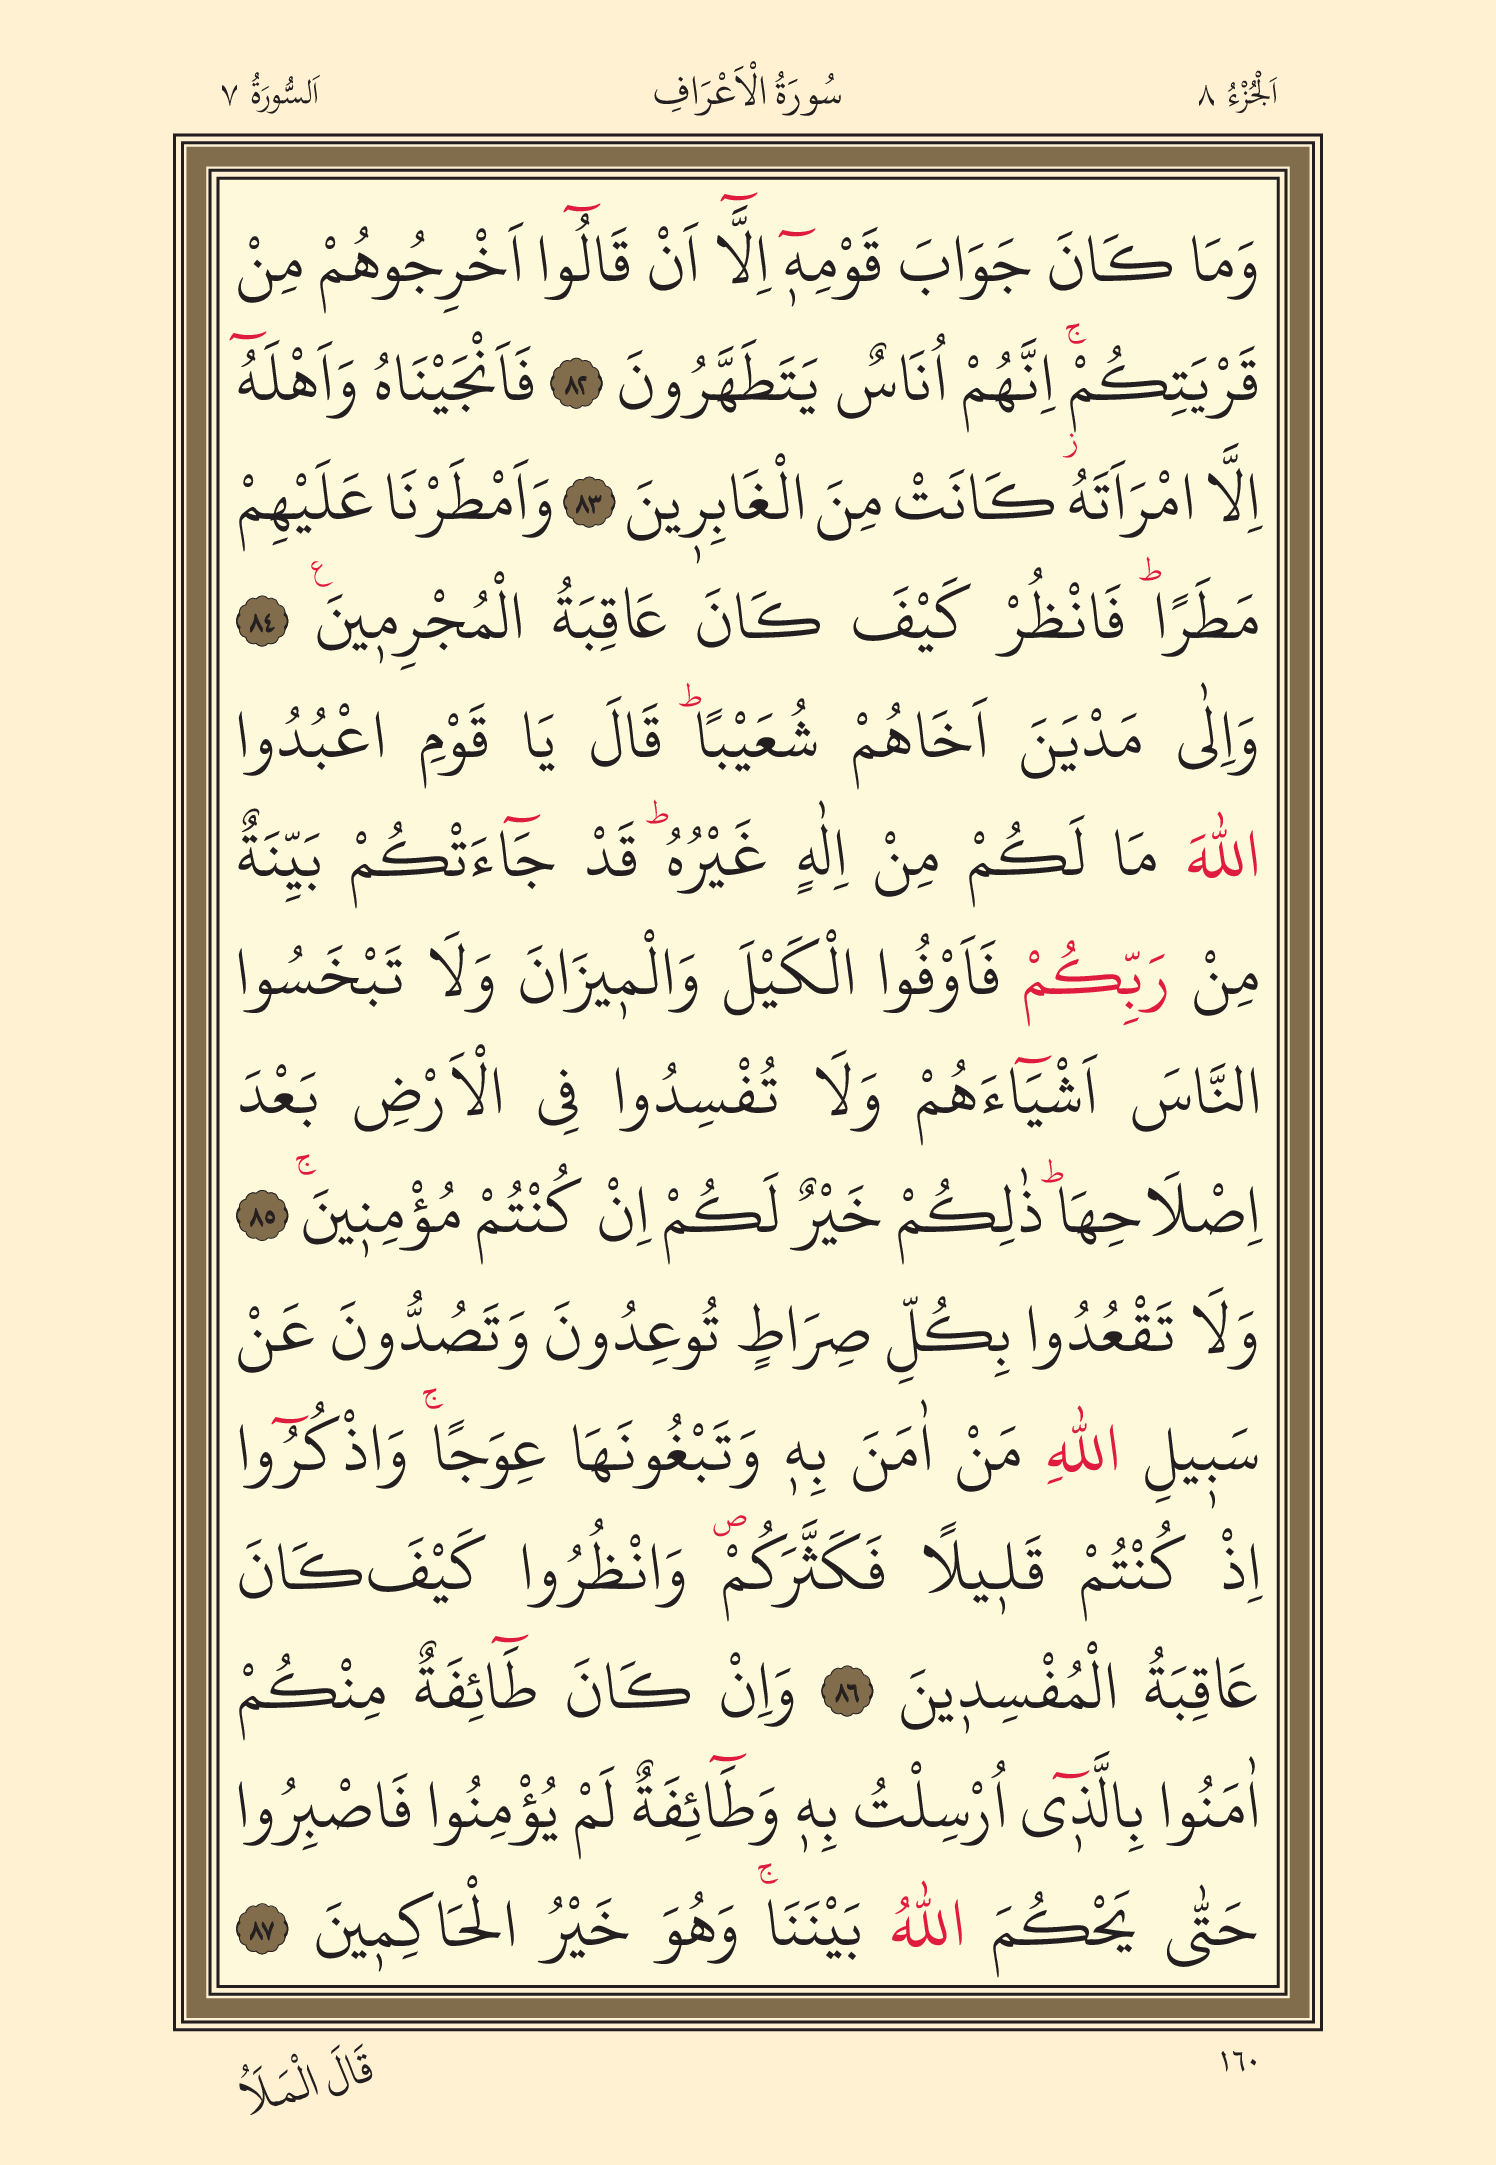 اَلْجُزْءُ ٨ سُورَةُ الْاَعْرَافِ اَلسُّورَةُ ٧
وَمَا كَانَ جَوَابَ قَوْمِه۪ٓ اِلَّٓا اَنْ قَالُٓوا اَخْرِجُوهُمْ مِنْ
قَرْيَتِكُمْۚ اِنَّهُمْ اُنَاسٌ يَتَطَهَّرُونَ ﴿٨٢﴾ فَاَنْجَيْنَاهُ وَاَهْلَهُٓ
اِلَّا امْرَاَتَهُۘ كَانَتْ مِنَ الْغَابِر۪ينَ ﴿٨٣﴾ وَاَمْطَرْنَا عَلَيْهِمْ
مَطَرًاۜ فَانْظُرْ كَيْفَ كَانَ عَاقِبَةُ الْمُجْرِم۪ينَ۟ ﴿٨٤﴾
وَاِلٰى مَدْيَنَ اَخَاهُمْ شُعَيْبًاۜ قَالَ يَا قَوْمِ اعْبُدُوا
اللّٰهَ مَا لَكُمْ مِنْ اِلٰهٍ غَيْرُهُۜ قَدْ جَٓاءَتْكُمْ بَيِّنَةٌ
مِنْ رَبِّكُمْ فَاَوْفُوا الْكَيْلَ وَالْم۪يزَانَ وَلَا تَبْخَسُوا
النَّاسَ اَشْيَٓاءَهُمْ وَلَا تُفْسِدُوا فِى الْاَرْضِ بَعْدَ
اِصْلَاحِهَاۜ ذٰلِكُمْ خَيْرٌ لَكُمْ اِنْ كُنْتُمْ مُؤْمِن۪ينَۚ ﴿٨٥﴾
وَلَا تَقْعُدُوا بِكُلِّ صِرَاطٍ تُوعِدُونَ وَتَصُدُّونَ عَنْ
سَب۪يلِ اللّٰهِ مَنْ اٰمَنَ بِه۪ وَتَبْغُونَهَا عِوَجًاۚ وَاذْكُرُٓوا
اِذْ كُنْتُمْ قَل۪يلًا فَكَثَّرَكُمْۖ وَانْظُرُوا كَيْفَ كَانَ
عَاقِبَةُ الْمُفْسِد۪ينَ ﴿٨٦﴾ وَاِنْ كَانَ طَٓائِفَةٌ مِنْكُمْ
اٰمَنُوا بِالَّذ۪ٓى اُرْسِلْتُ بِه۪ وَطَٓائِفَةٌ لَمْ يُؤْمِنُوا فَاصْبِرُوا
حَتّٰى يَحْكُمَ اللّٰهُ بَيْنَنَاۚ وَهُوَ خَيْرُ الْحَاكِم۪ينَ ﴿٨٧﴾
١٦٠ قَالَ الْمَلَاُ